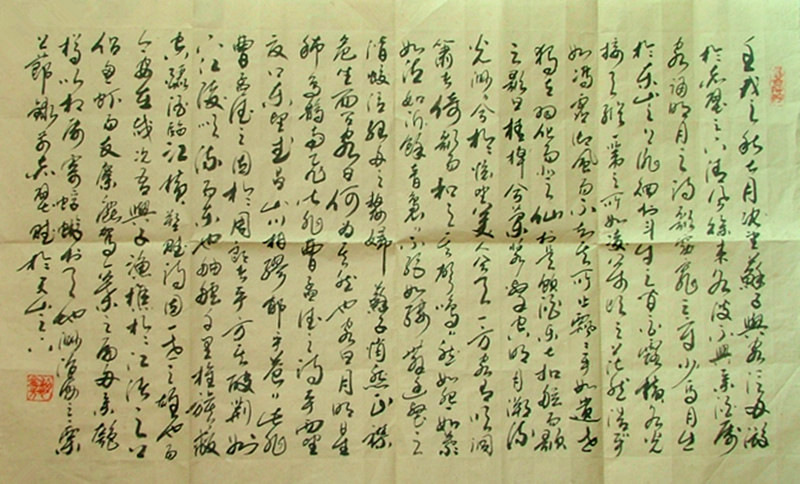 壬戌之秋七月既望蘇子與客泛舟游
於赤壁之下清風徐來水波不興舉酒屬
客誦明月之詩歌窈窕之章少焉月出
於東山之上徘徊於斗牛之間白露橫水光
接天縱一葦之所如凌萬頃之茫然浩乎
如馮虛御風而不知其所止飄飄乎如遺世
獨立羽化而登仙於是飲酒樂甚扣舷而歌
之歌曰桂棹兮蘭槳擊空明月溯流
光渺渺兮於懷望美人兮天一方客有吹洞
簫者倚歌而和之其聲嗚嗚然如怨如慕
如泣如訴餘音裊裊不絕如縷舞幽壑之
潛蛟泣孤舟之嫠婦蘇子愀然正襟
危坐而問客曰何為其然也客曰月明星
稀烏鵲南飛此非曹孟德之詩乎西望
夏口東望武昌山川相繆鬱乎蒼蒼此非
曹孟德之困於周郎者乎方其破荊州
下江陵順流而東也舳艫千里旌旗蔽
空釃酒臨江橫槊賦詩固一世之雄也而
今安在哉況吾與子漁樵於江渚之上
侶魚蝦而友麋鹿駕一葉之扁舟舉匏
樽以相屬寄蜉蝣於天地渺滄海之一粟
節錄前赤壁賦於天山之下